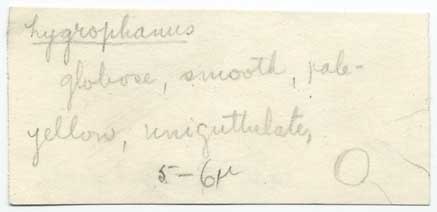 hygrophanus
globose, smooth, pale-
yellow, uniguttulate,
5-6µ